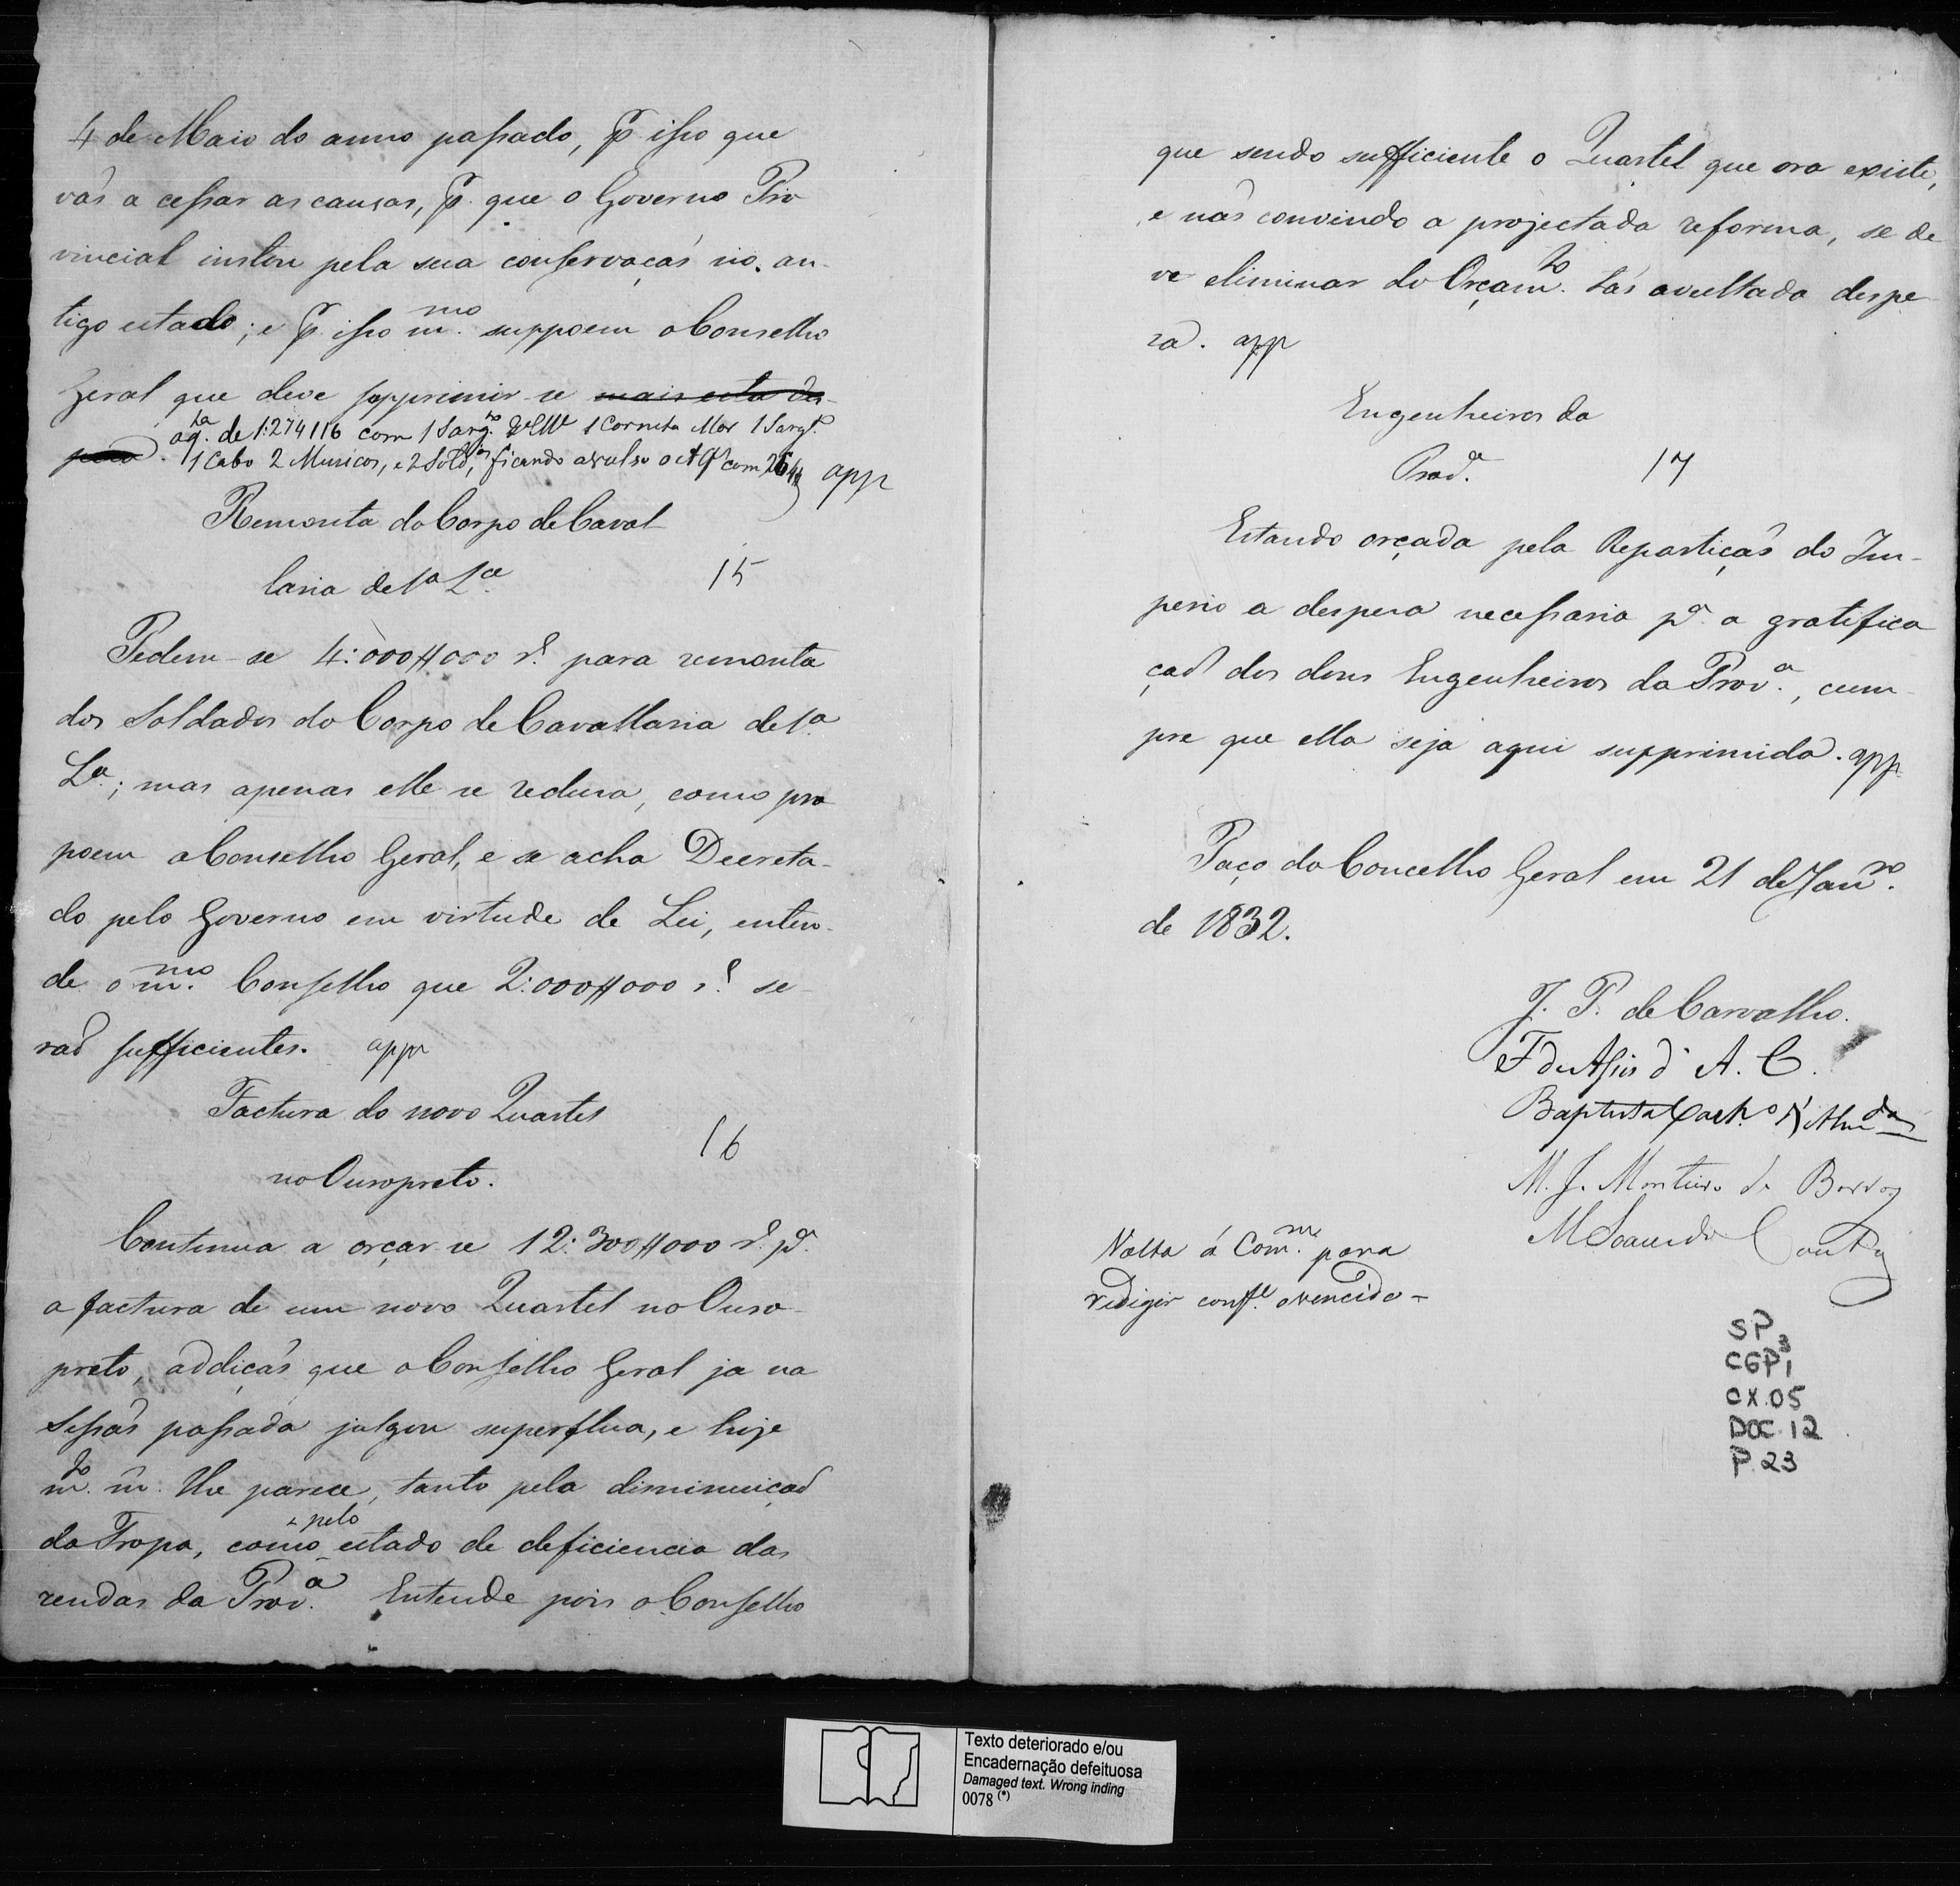 4 de Maio do anno passado, p. isso que
vaõ a cessar as causas, p. que o Governo Pro
vincial instou pela sua conservaçaõ no an-
tigo estado; e p. isso m.mo suppoem o Conselho
Geral que deve supprimir-se mais esta des-
peza. a q.ta de 1:274116 com 1 Sarg.to 1 Corneta Mor 1 Sarg.to
1 Cabo 2 Musicos, e 2 Sold.os, ficando avulso o com 264$ app
Remonta do Corpo de Caval
laria de 1a L.a 15
Pedem-se 4:000$000 r.s para remonta
dos Soldados do Corpo de Cavallaria de 1a
L.a; mas apenas elle se reduza, como pro
poem o Conselho Geral, e se acha Decreta-
do pelo Governo em virtude de Lei, enten-
de o m.mo Conselho que 2:000$000 r.s se-
raõ sufficientes. app
Factura do novo Quartel
16
no Ouropreto.
Continua a orçar-se 12:300$000 r.s p.a
a factura de um novo Quartel no Ouro-
preto, addiçaõ que o Conselho Geral ja na
Sessaõ passada julgou superflua, e hoje
m.to m. lhe parece, tanto pela diminuiçaõ
da Tropa, como pelo estado de deficiencia das
rendas da Prov.a Entende pois o Conselho
que sendo sufficiente o Quartel que ora existe,
e naõ convindo a projectada reforma, se de
ve eliminar do Orçam.to taõ avultada despe
za. app
Engenheiros da
Prov.a 17
Estando orçada pela Repartiçaõ do Im-
perio a despeza necessaria p.a a gratifica
çaõ dos dous Engenheiros da Prov.a, cum-
pre que ella seja aqui supprimida. app
Paço do Concelho Geral em 21 de Jan.ro
de 1832.
J. P. de Carvalho.
F de Assis d' A. C.
Baptista Caet.o d'Almda
M. J. Monteiro de Barros
M Soares do Couto
Volta á Com.m para
redigir conf.e o vencido-
SP
CGP1 3
CX.05
DOC.12
P.23
Texto deteriorado e/ou
Encadernação defeituosa
Damaged text. Wrong inding
0078 (*)